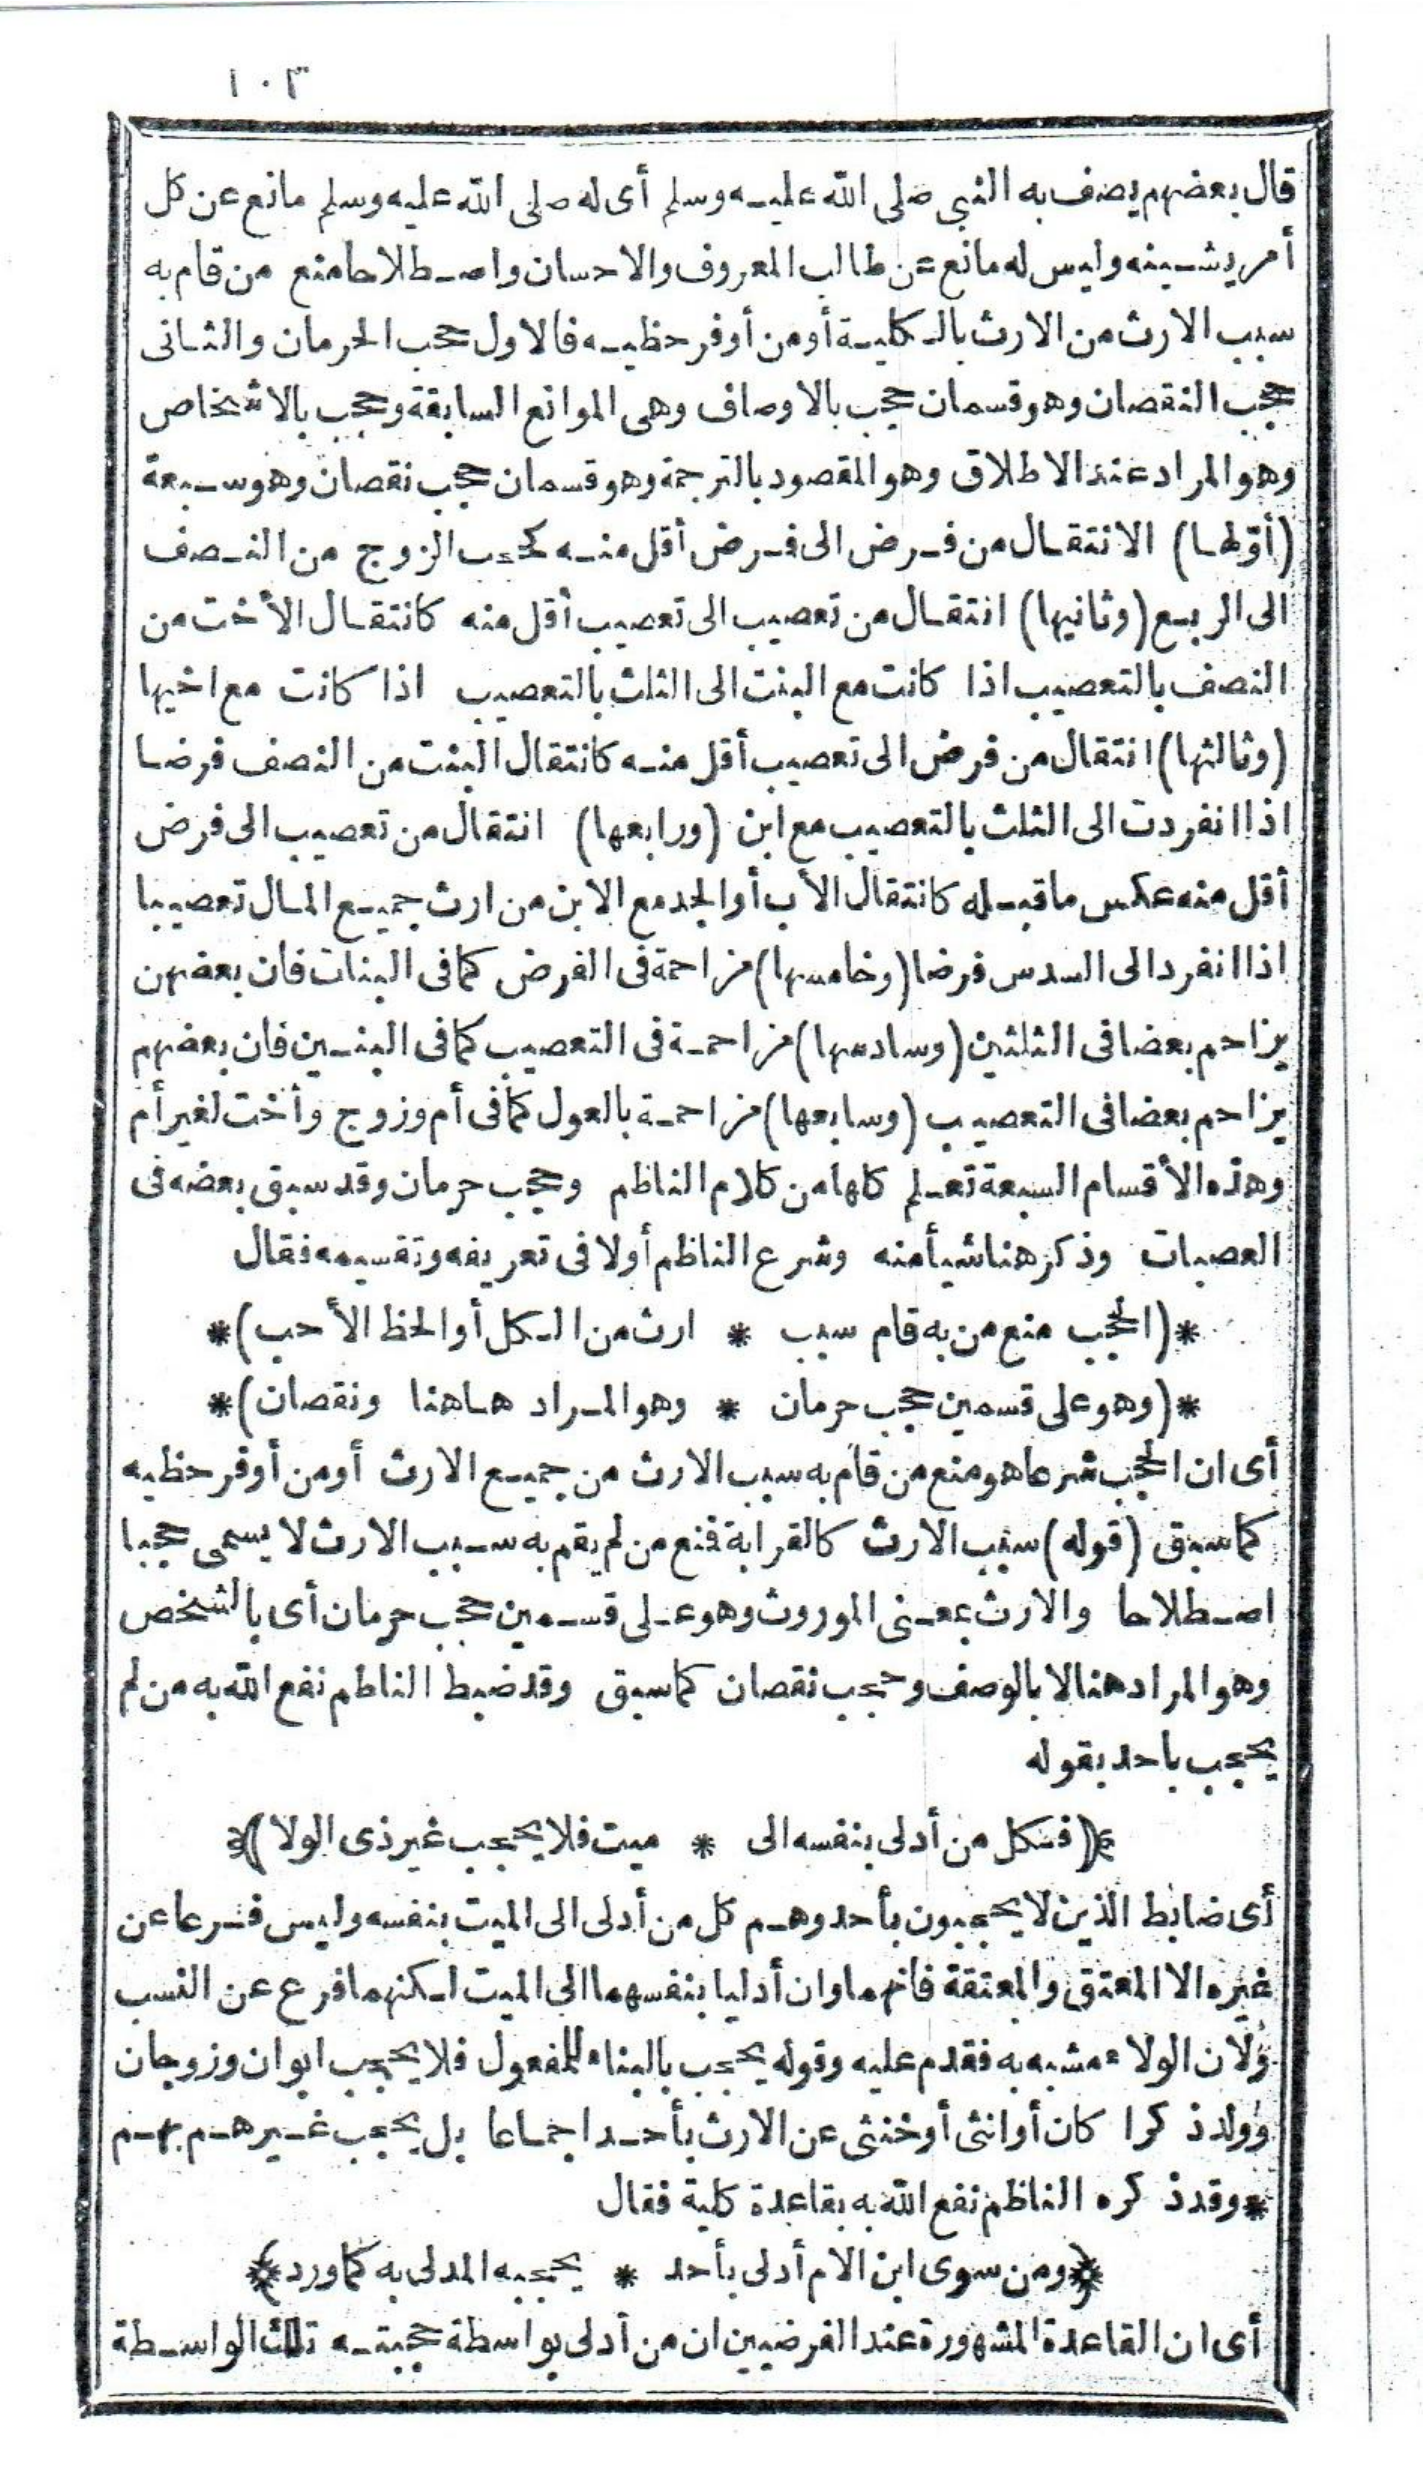 ١٠٣
قال بعضهم يصف به النبى صلى الله عليه وسلم أى له صلى الله عليه وسلم مانع عن كل
أمر يشينه وليس له مانع عن طالب المعروف والاحسان واصطلاحا منع من قام به
سبب الارث من الارث بالكلية أو من أوفر حظيه فالاول حجب الحرمان والثانى
حجب النقصان وهو قسمان حجب بالاوصاف وهى الموانع السابقة وحجب بالاشخاص
وهو المراد عند الاطلاق وهو المقصود بالترجمة وهو قسمان حجب نقصان وهو سبعة
(أولها) الانتقال من فرض الى فرض أقل منه كحجب الزوج من النصف
الى الربع (وثانيها) انتقال من تعصيب الى تعصيب أقل منه كانتقال الأخت من
النصف بالتعصيب اذا كانت مع البنت الى الثلث بالتعصيب اذا كانت مع اخيها
(وثالثها) انتقال من فرض الى تعصيب أقل منه كانتقال البنت من النصف فرضا
اذا انفردت الى الثلث بالتعصيب مع ابن (ورابعها) انتقال من تعصيب الى فرض
أقل منه عكس ما قبله كانتقال الأب أو الجد مع الابن من ارث جميع المال تعصيبا
اذا انفرد الى السدس فرضا (وخامسها) مزاحمة فى الفرض كما فى البنات فان بعضهن
يزاحم بعضا فى الثلثين (وسادسها) مزاحمة فى التعصيب كما فى البنين فان بعضهم
يزاحم بعضا فى التعصيب (وسابعها) مزاحمة بالعول كما فى أم وزوج وأخت لغير أم
وهذه الأقسام السبعة تعلم كلها من كلام الناظم وحجب حرمان وقد سبق بعضه فى
العصبات وذكر هنا شيأ منه وشرع الناظم أولا فى تعريفه وتقسيمه فقال
*(الحجب منع من به قام سبب * ارث من الكل أو الحظ الأحب)*
*(وهو على قسمين حجب حرمان * وهو المراد هاهنا ونقصان)*
أى ان الحجب شرعا هو منع من قام به سبب الارث من جميع الارث أو من أوفر حظيه
كما سبق (قوله) سبب الارث كالقرابة فمنع من لم يقم به سبب الارث لا يسمى حجبا
اصطلاحا والارث بمعنى الموروث وهو على قسمين حجب حرمان أى بالشخص
وهو المراد هنا لا بالوصف وحجب نقصان كما سبق وقد ضبط الناظم نفع الله به من لم
يحجب باحد بقوله
﴿(فكل من أدلى بنفسه الى * ميت فلا يحجب غير ذى الولا)﴾
أى ضابط الذين لا يحجبون بأحد وهم كل من أدلى الى الميت بنفسه وليس فرعا عن
غيره الا المعتق والمعتقة فانهما وان أدليا بنفسهما الى الميت لكنهما فرع عن النسب
ولان الولاء مشبه به فقدم عليه وقوله يحجب بالبناء للمفعول فلا يحجب ابوان وزوجان
وولد ذكرا كان أو انثى أو خنثى عن الارث بأحد اجماعا بل يحجب غيرهم بهم
*وقد ذكره الناظم نفع الله به بقاعدة كلية فقال
﴿ومن سوى ابن الام أدلى بأحد * يحجبه المدلى به كما ورد﴾
أى ان القاعدة المشهورة عند الفرضيين ان من أدلى بواسطة حجبته تلك الواسطة